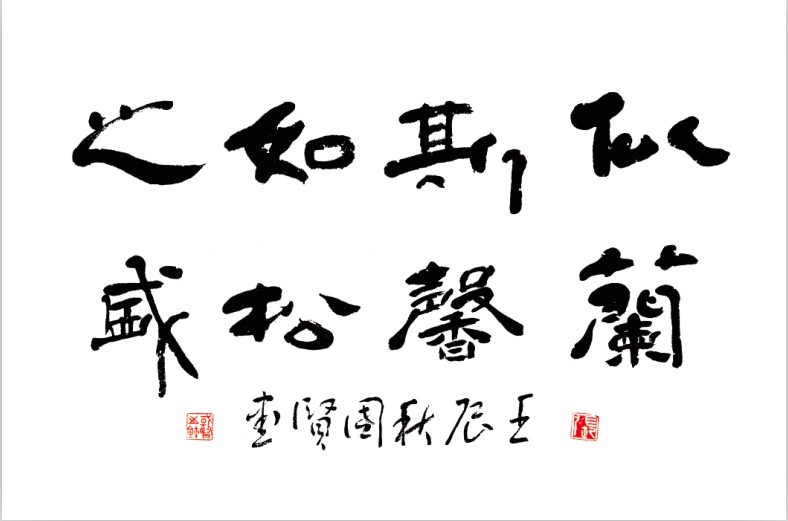 似蘭
斯馨
如松
之盛
壬辰秋國賢書